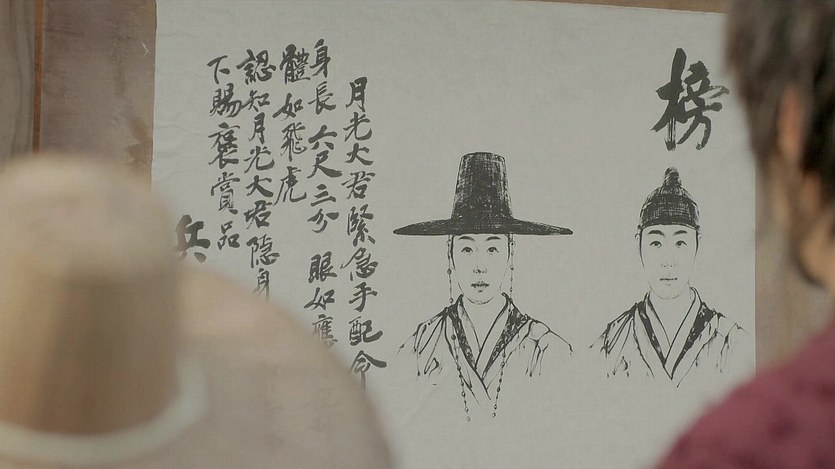 榜
月光大君緊急手配令
身長六尺三分 眼如
體如飛虎
認知月光大君隠身
下賜褒賞品
兵